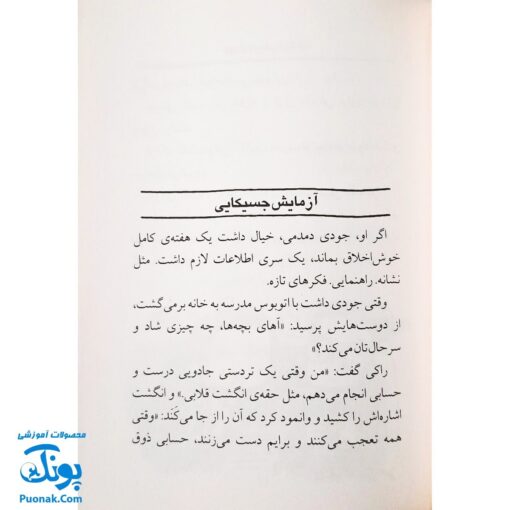 آزمایش جسیکایی
اگر او، جودی دمدمی، خیال داشت یک هفته‌ی کامل
خوش‌اخلاق بماند، یک سری اطلاعات لازم داشت. مثل
نشانه. راهنمایی. فکرهای تازه.
وقتی جودی داشت با اتوبوس مدرسه به خانه برمی‌گشت،
از دوست‌هایش پرسید: «آهای بچه‌ها، چه چیزی شاد و
سرحال‌تان می‌کند؟»
راکی گفت: «من وقتی یک تردستی جادویی درست و
حسابی انجام می‌دهم، مثل حقه‌ی انگشت قلابی.» و انگشت
اشاره‌اش را کشید و وانمود کرد که آن را از جا می‌کَند: «وقتی
همه تعجب می‌کنند و برایم دست می‌زنند، حسابی ذوق
محصولات آموزشی
پونک
Puonak.Com